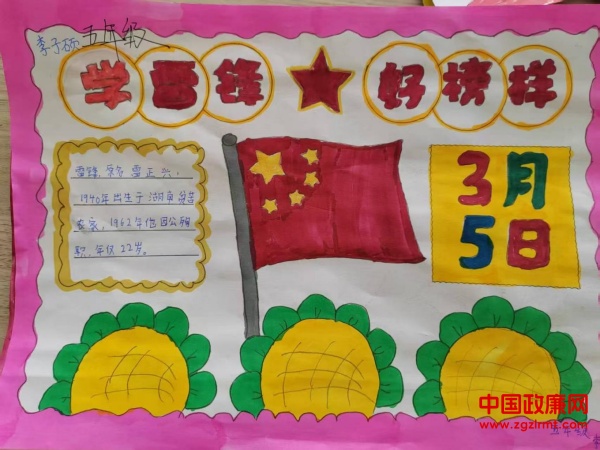 李子硕 五年级
学雷锋 好榜样
雷锋,原名雷正兴,
1940年出生于湖南贫苦
农家,1962年他因公殉
职,年仅22岁。
3月
5日
中国政廉网
www.zgzlrmt.com
五年级